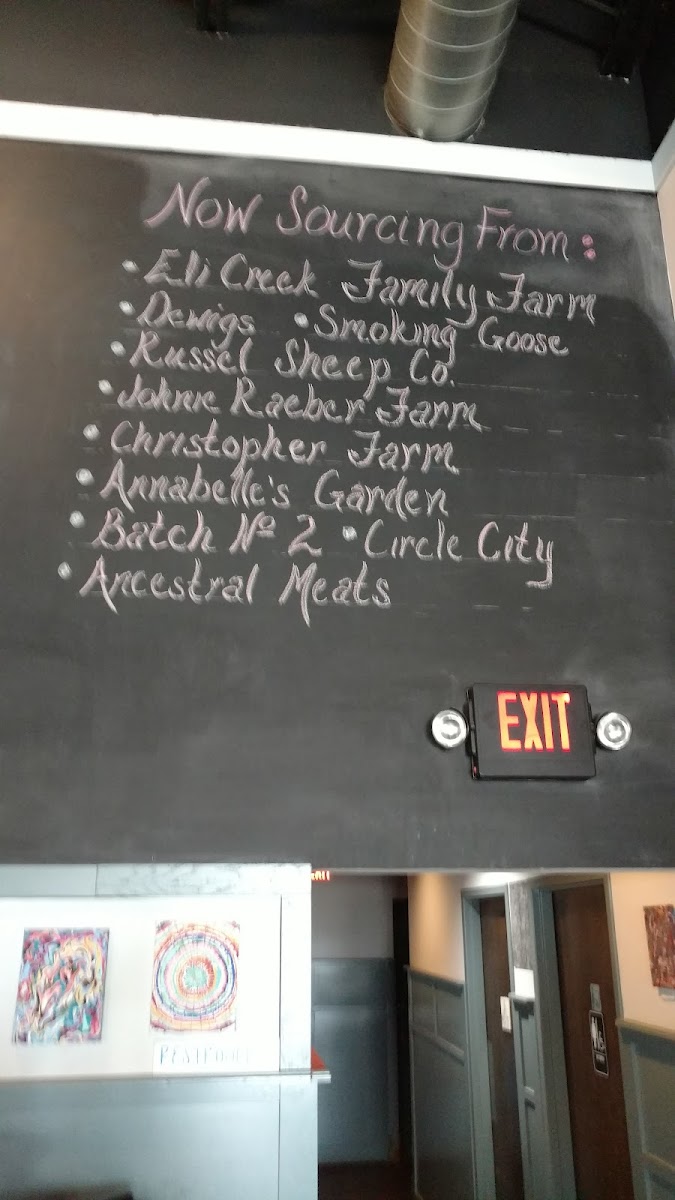 Now Sourcing From:
• Eli Creek Family Farm
• Dewigs • Smoking Goose
• Russel Sheep Co.
• Johnne Raeber Farm
• Christopher Farm
• Annabelle's Garden
• Batch Nº 2 • Circle City
• Ancestral Meats
EXIT